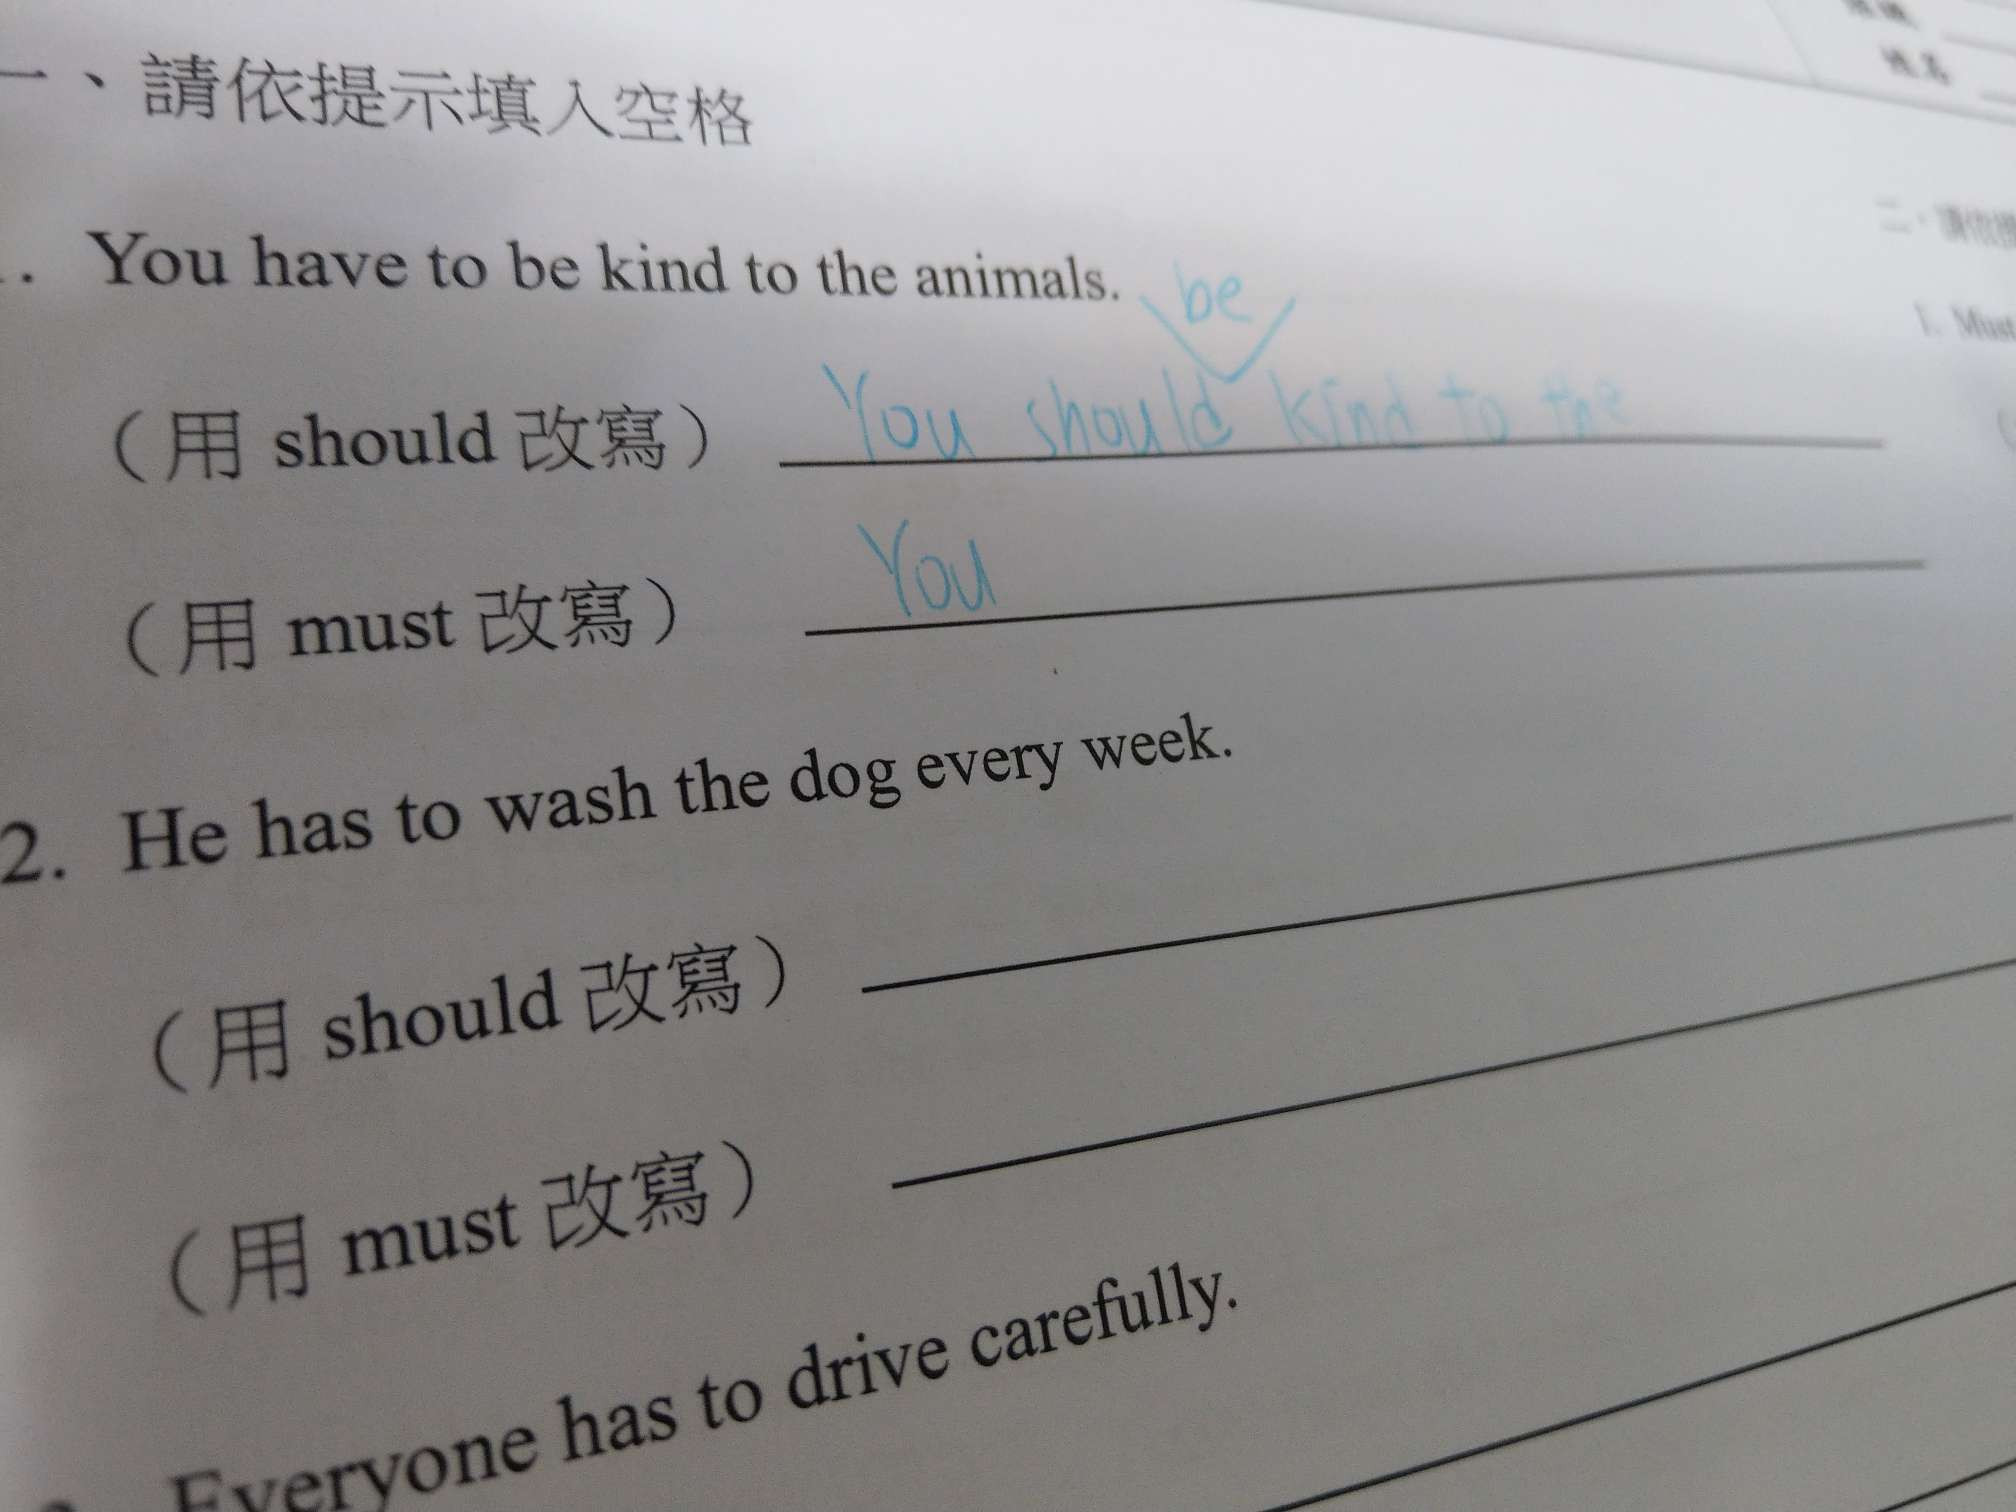 一、請依提示填入空格
. You have to be kind to the animals.
be
（用 should 改寫） You should kind to the
（用 must 改寫） You
2. He has to wash the dog every week.
（用 should 改寫）
（用 must 改寫）
Everyone has to drive carefully.
二、請依
1. Must
姓名